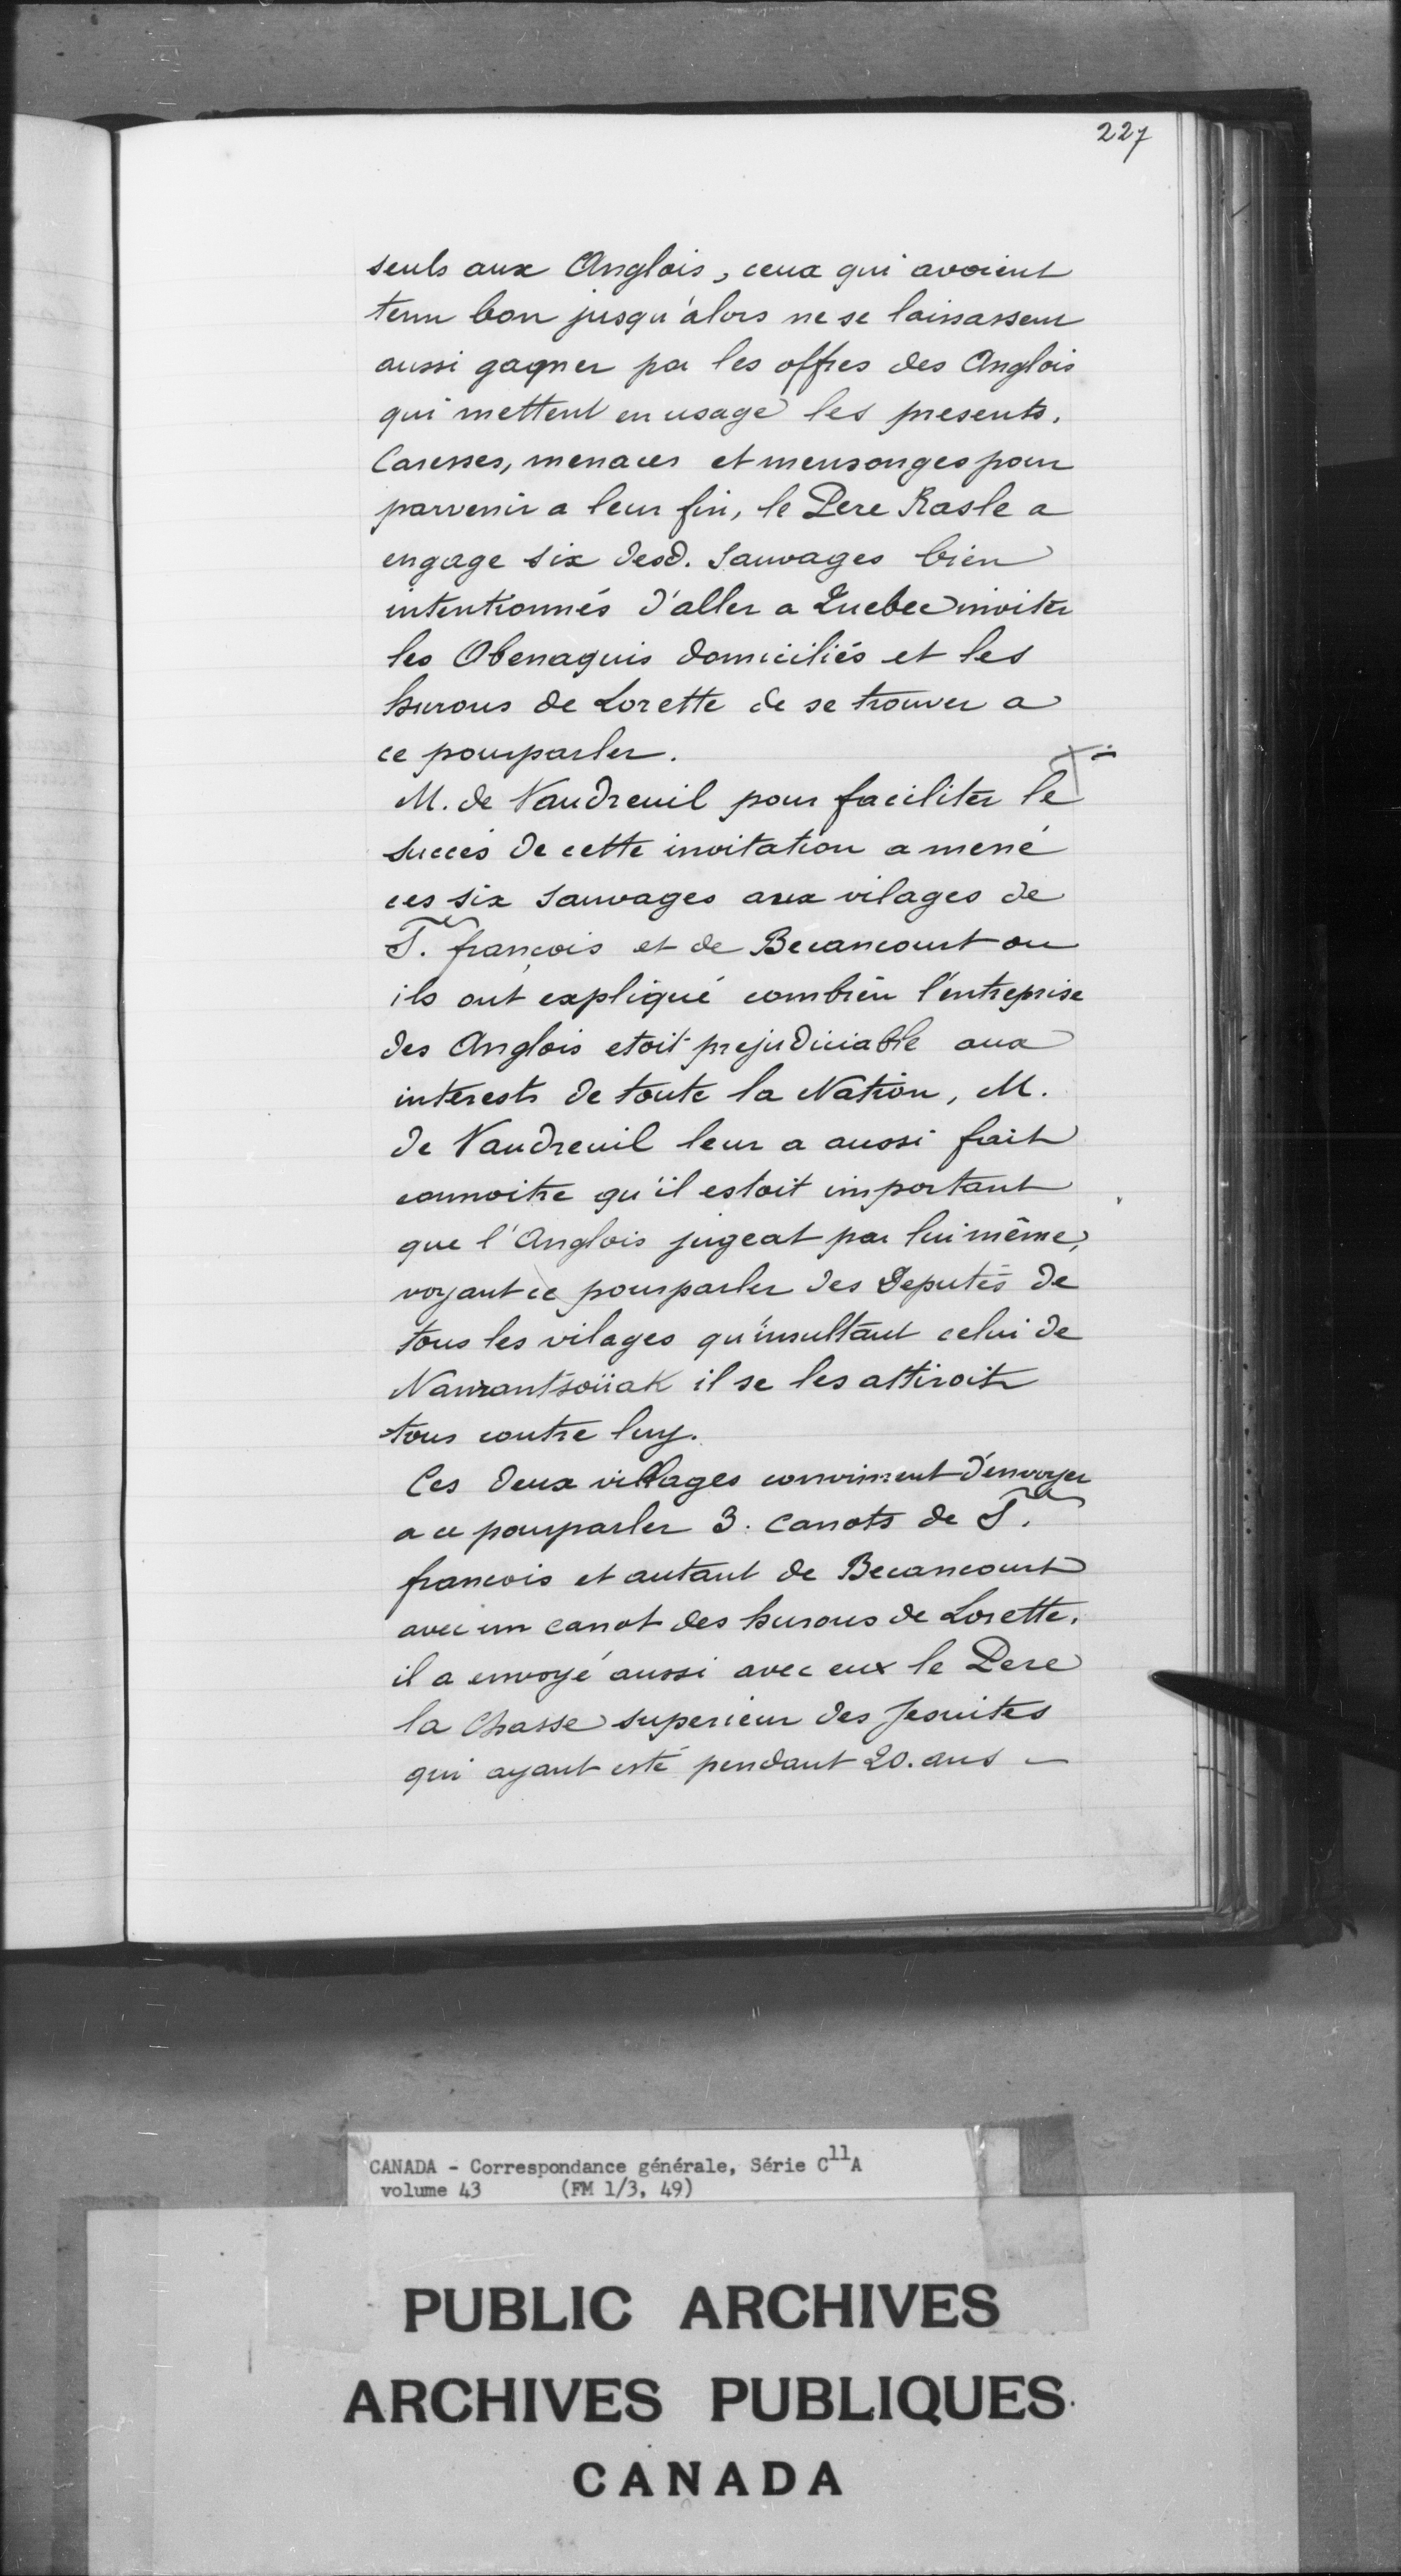 227
seuls aux Anglois, ceux qui avoient
tenu bon jusqu'alors ne se laissassent
aussi gagner par les offres des Anglois
qui mettent en usage les presents,
Caresses, menaces et mensonges pour
parvenir a leur fin, le Pere Rasle a
engage six desd. Sauvages bien
intentionnés d'aller a Quebec inviter
les Abenaquis domiciliés et les
hurons de Lorette de se trouver a
ce pourparler.
M. de Vaudreuil pour faciliter le
succès de cette invitation a mené
ces six Sauvages aux vilages de
S. françois et de Becancourt ou
ils ont expliqué combien l'entreprise
des Anglois etoit prejudiciable aux
interests de toute la Nation, M.
de Vaudreuil leur a aussi fait
connoitre qu'il estoit important
que l'Anglois jugeat par lui même,
voyant ce pourparler des Deputés de
tous les vilages qu'insultant celui de
Nanrantsoüak il se les attiroit
tous contre luy.
Ces deux villages convinrent d'envoyer
a ce pourparler 3. canots de S.
francois et autant de Becancourt
avec un canot des hurons de Lorette,
il a envoyé aussi avec eux le Pere
la Chasse superieur des Jesuites
qui ayant esté pendant 20. ans -
CANADA - Correspondance générale, Série C11A
volume 43 (FM 1/3, 49)
PUBLIC ARCHIVES
ARCHIVES PUBLIQUES
CANADA